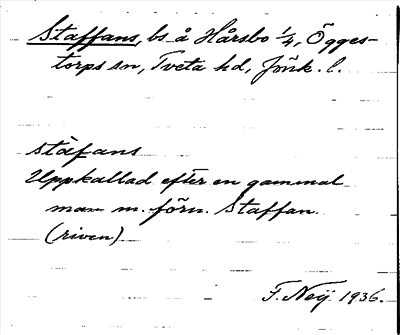 Staffans, bs å Hårsbo 1/4, Ögges-
torps sn, Tveta hd, Jönk. l.
stàfans
Uppkallad efter en gammal
man m. förn. Staffan.
(riven)
F. Neij. 1936.